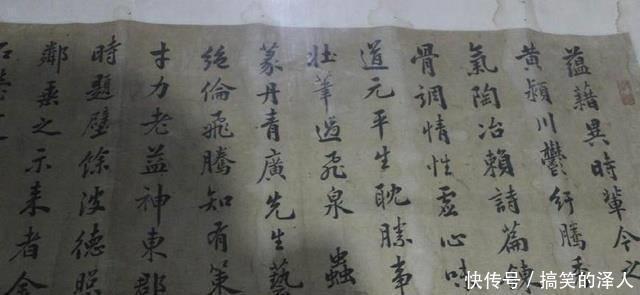 蘊藉異時輩今之
黄潁川鬱紆騰
氣陶冶賴詩篇
骨調情性虚心味
道元平生耽勝事
壯筆過飛泉 蟲
篆丹青廣先生藝
絶倫飛騰知有策
才力老益神東郡
時題壁餘波德照
鄰棗之示来者金
石
快传号/搞笑的泽人